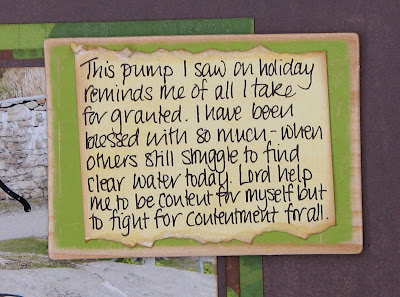 This pump I saw on holiday
reminds me of all I take
for granted. I have been
blessed with so much - when
others still struggle to find
clear water today. Lord help
me to be content for myself but
to fight for contentment for all.